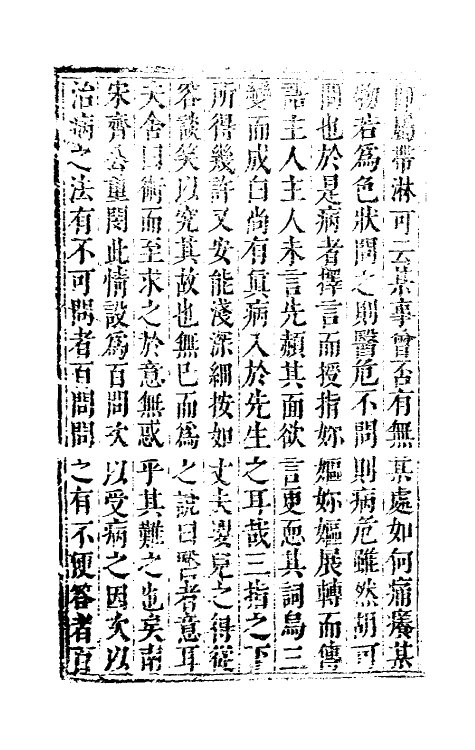 屬帶淋可云某事曾否有無某處如何痛癢某
物若爲色狀問之則醫危不問則病危雖然胡可
問也於是病者擇言而授指妳嫗妳嫗展轉而傳
語主人主人未言先頳其面欲言更恧其詞烏三
變而成白尚有眞病入於先生之耳哉三指之下
所得幾許又安能淺深細按如丈夫嬰兒之得從
容談笑以究其故也無已而爲之說曰醫者意耳
夫舍曰術而至求之於意無惑乎其難之也矣南
宋齊公重閔此情設爲百問次以受病之因次以
治病之法有不可問者百問問之有不便答者百